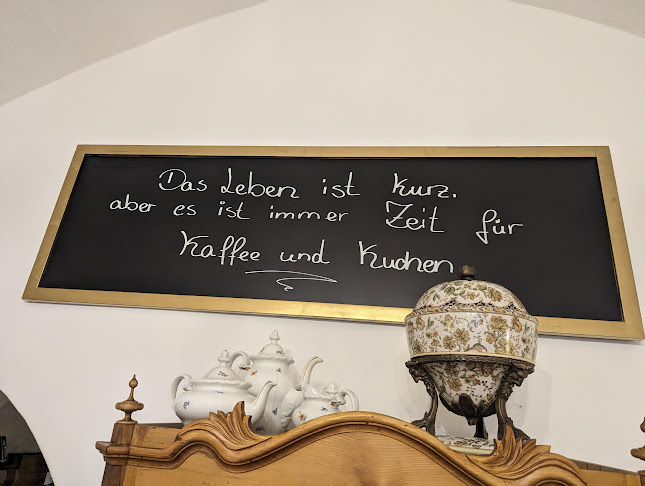 Das Leben ist kurz.
aber es ist immer Zeit für
Kaffee und Kuchen